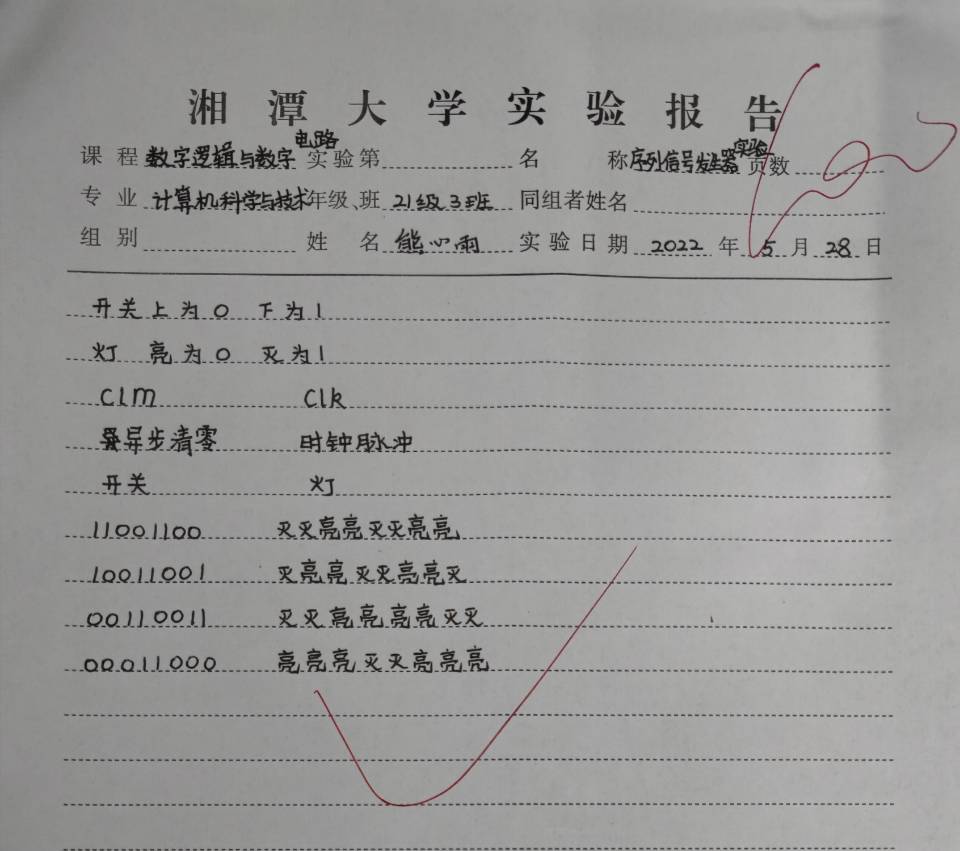 湘潭大学实验报告
课程 数字逻辑与数字电路 实验第 名称 序列信号发生器实验 页数
专业 计算机科学与技术 年级、班 21级3班 同组者姓名
组别 姓名 熊心雨 实验日期 2022 年 5 月 28 日
开关上为0 下为1
灯 亮为0 灭为1
Clm Clk
异步清零 时钟脉冲
开关 灯
11001100 灭灭亮亮灭灭亮亮
10011001 灭亮亮灭灭亮亮灭
00110011 灭灭亮亮亮亮灭灭
00011000 亮亮亮灭灭亮亮亮